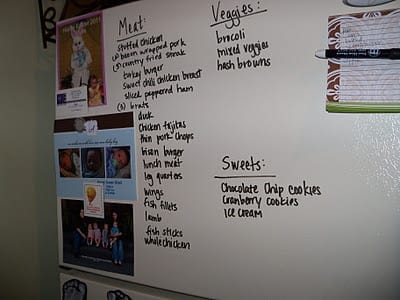 Meat:
spotted chicken
(2) bacon wrapped pork
(3) country fried steak
turkey burger
sweet chili chicken breast
sliced peppered ham
(3) brats
duck
Chicken fajitas
thin pork chops
bison burger
lunch meat
leg quarters
wings
fish fillets
lamb
fish sticks
whole chicken
Veggies:
brocoli
mixed veggies
hash browns
Sweets:
Chocolate Chip cookies
Cranberry cookies
ICE CREAM